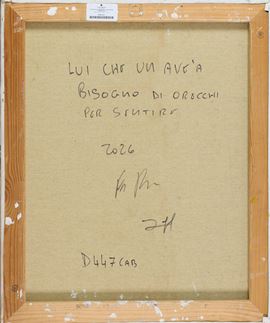 LUI CHE UN AVE'A
BISOGNO DI ORECCHI
PER SENTIRE
2026
D447CAB